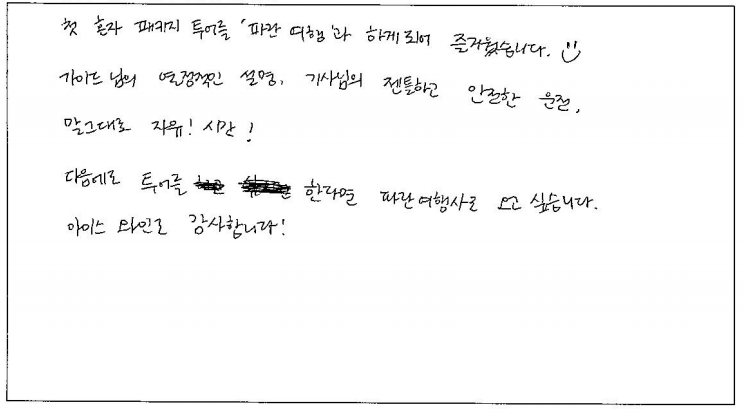 첫 혼자 패키지 투어를 '파란 여행'과 하게 되어 즐거웠습니다.
가이드 님의 열정적인 설명, 기사님의 젠틀하고 안전한 운전,
말그대로 자유! 시간!
다음에도 투어를 한다면 파란여행사로 오고 싶습니다.
아이스 와인도 감사합니다!